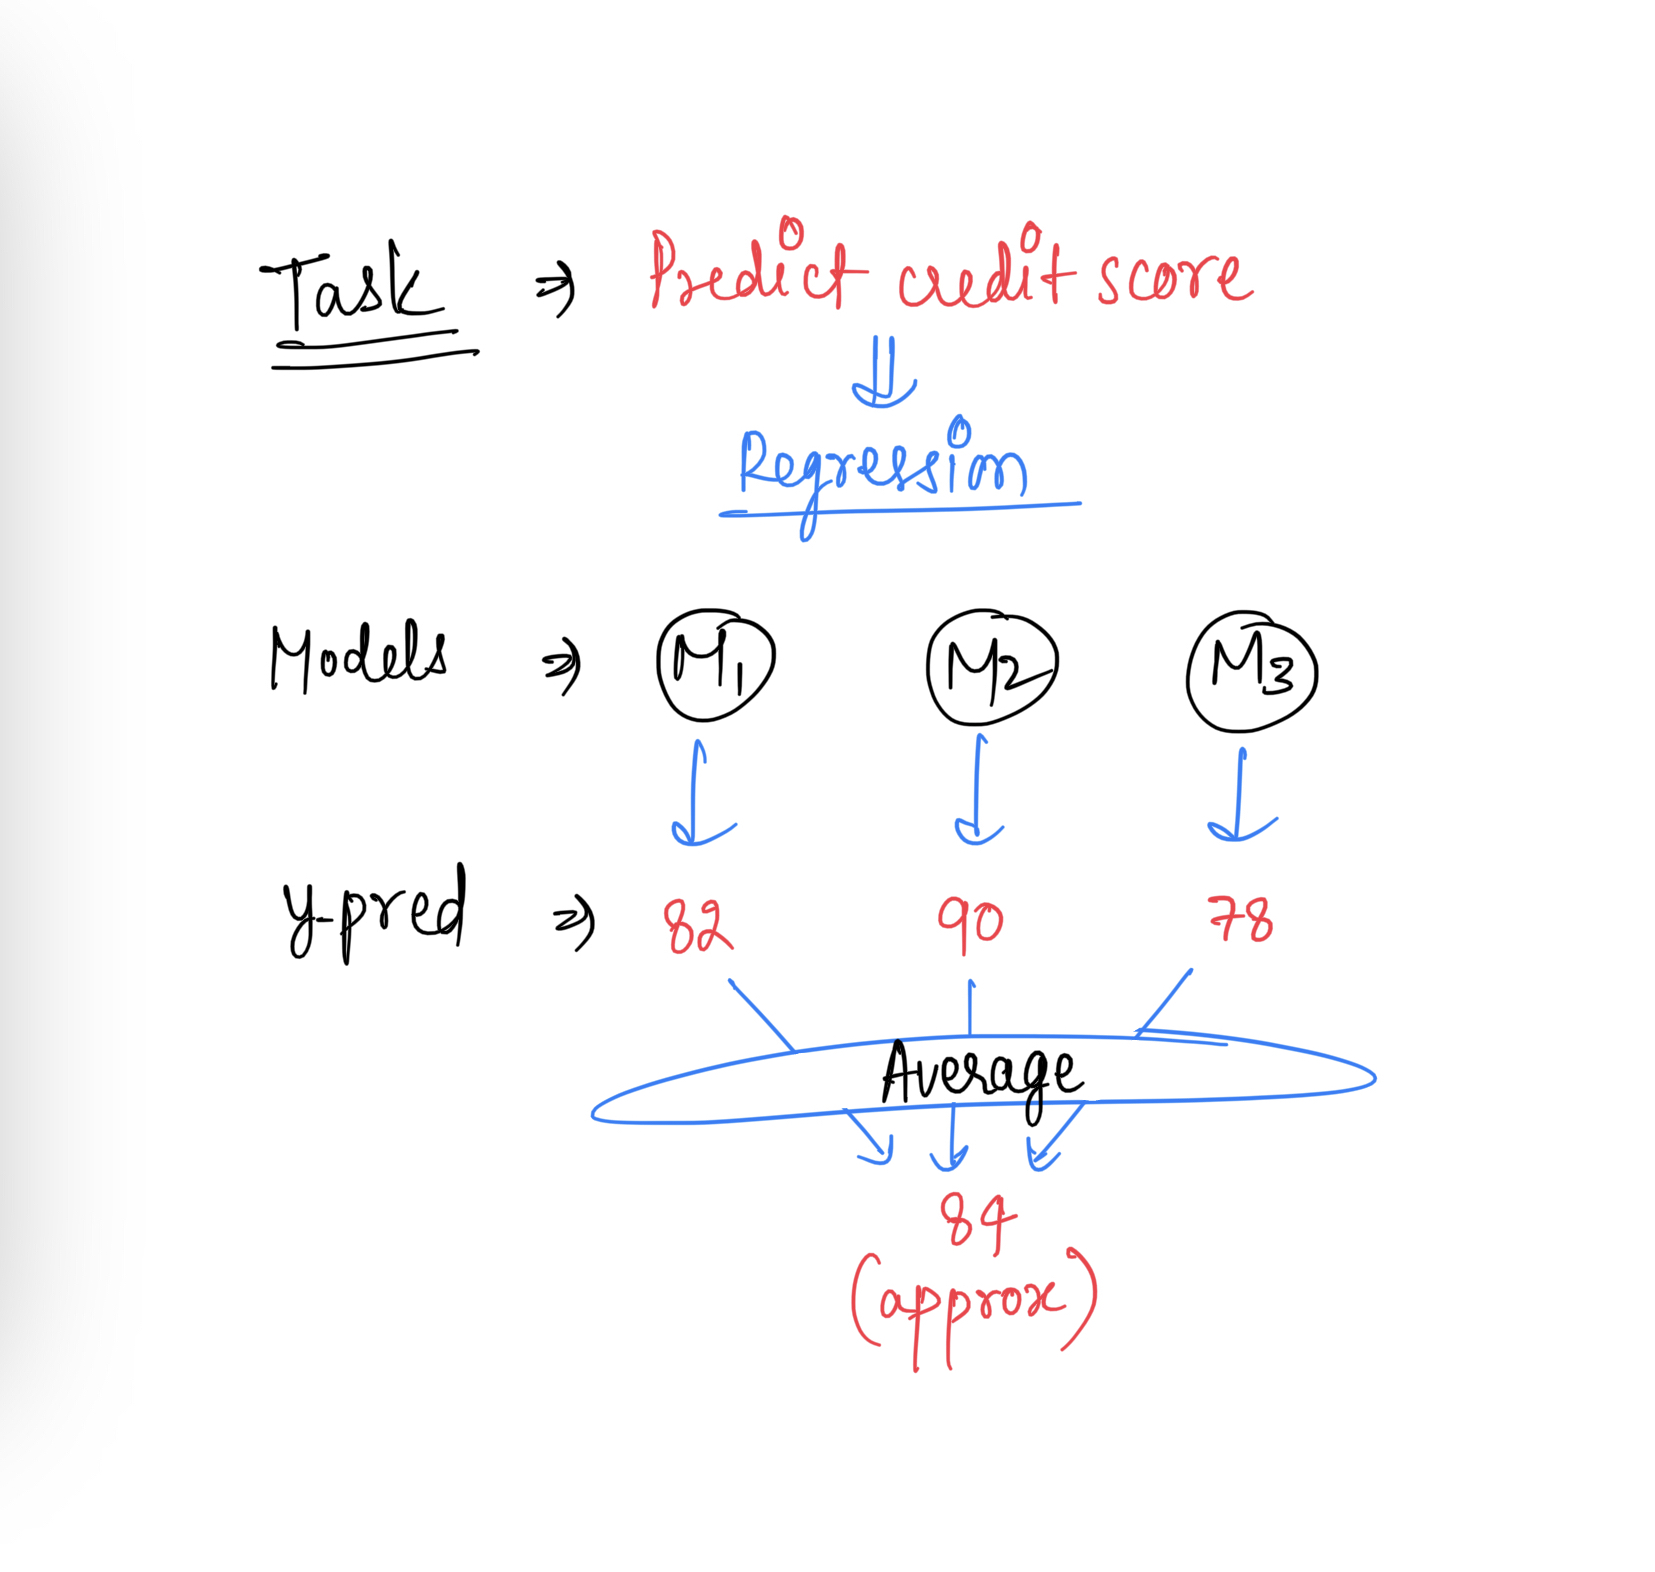 Task ⇒ Predict credit score
Regression
Models ⇒ M1 M2 M3
y-pred ⇒ 82 90 78
Average
84
(approx)